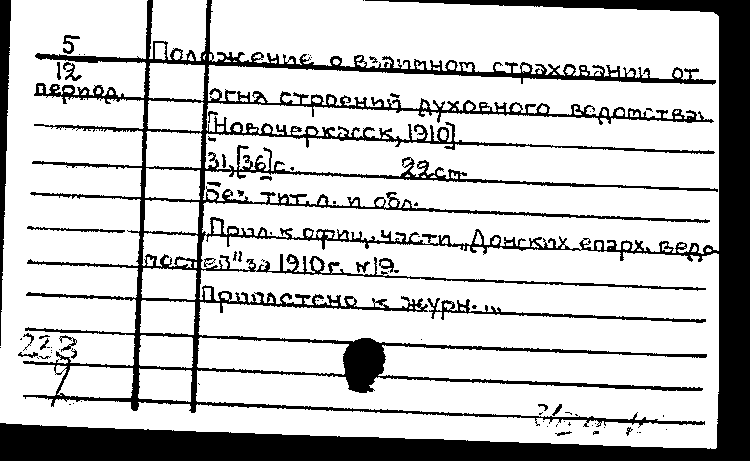 5
12
период.
Положение о взаимном страховании от
огня строений духовного ведомства.
[Новочеркасск, 1910].
31,[36]с. 22см.
Без тит.л. и обл.
"Прил. к офиц. части "Донских епарх. ведо
мостей" за 1910г. №19.
Приплетено к журн. ...
233